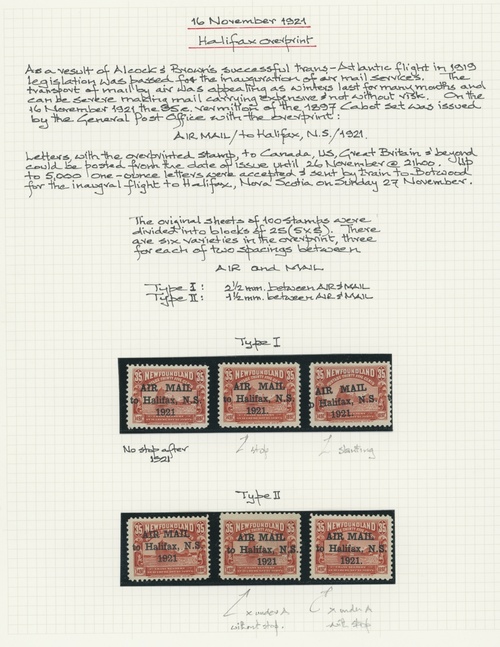 16 November 1921
Halifax overprint
As a result of Alcock & Brown's successful Trans-Atlantic flight in 1919
legislation was passed for the inauguration of air mail services. The
transport of mail by air was appealing as winters last for many months and
can be severe making mail carrying expensive & not without risk. On the
16 November 1921 the 35c. vermilion of the 1897 Cabot set was issued
by the General Post Office with the overprint:
AIR MAIL / to Halifax, N.S. / 1921.
Letters with the overprinted stamp, to Canada, US, Great Britain & beyond
could be posted from the date of issue until 26 November @ 2100. Up
to 5,000 one-ounce letters were accepted & sent by train to Botwood
for the inaugral flight to Halifax, Nova Scotia on Sunday 27 November.
The original sheets of 100 stamps were
divided into blocks of 25 (5x5). There
are six varieties in the overprint, three
for each of two spacings between
AIR and MAIL
Type I: 2½ mm. between AIR & MAIL
Type II: 1½ mm. between AIR & MAIL
Type I
35 NEWFOUNDLAND 35 35 NEWFOUNDLAND 35 35 NEWFOUNDLAND 35
AIR MAIL AIR MAIL AIR MAIL
to Halifax, N.S. to Halifax, N.S. to Halifax, N.S.
1921 1921. 1921.
No stop after stop slanting
1921
Type II
35 NEWFOUNDLAND 35 35 NEWFOUNDLAND 35 35 NEWFOUNDLAND 35
AIR MAIL AIR MAIL AIR MAIL
to Halifax, N.S. to Halifax, N.S. to Halifax, N.S.
1921 1921 1921.
x under A x under A
without stop. with stop